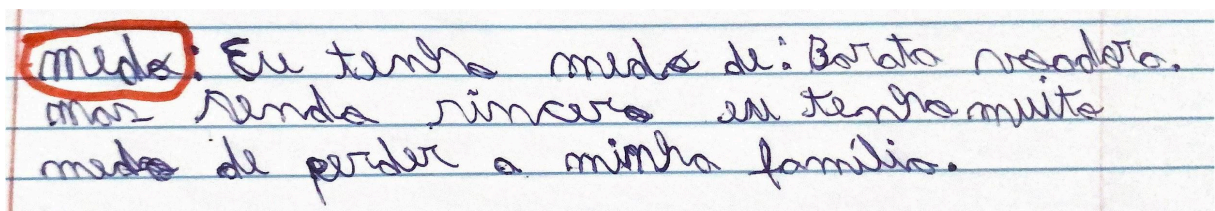 medo: Eu tenho medo de: Barata voadora.
mas sendo sincero eu tenho muito
medo de perder a minha família.